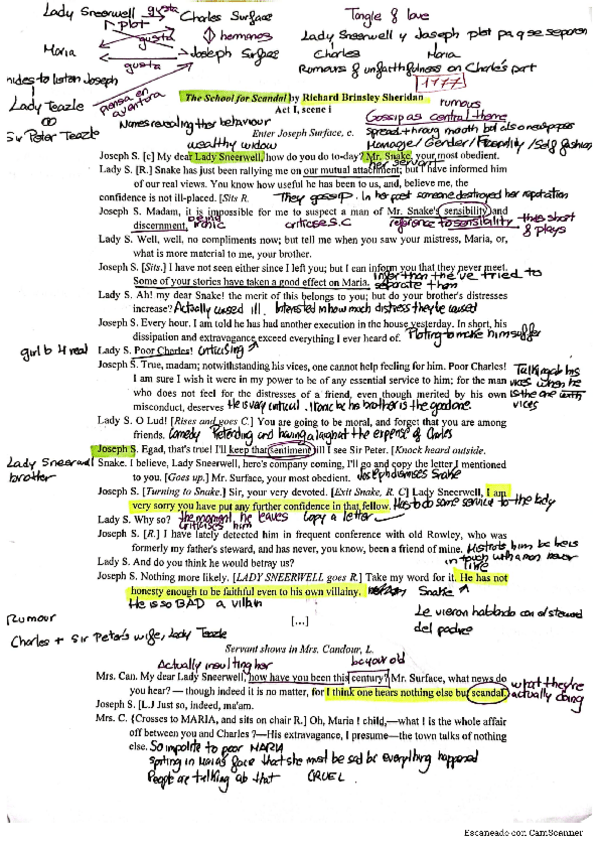 Lady Sneerwell gusta Charles Surface
Tangle of love
plot
hermanos
Lady Sneerwell y Joseph plot pa q se separen
Maria
gusta
Joseph Surface
Charles
Maria
gusta
Rumours of unfaithfulness on Charle's part
Joseph
1777
Lady Teazle
piensa en
aventura
The School for Scandal by Richard Brinsley Sheridan
rumous
Act I, scene i
Sir Peter Teazle
Names revealing their behaviour
Gossip as central theme
Enter Joseph Surface, c.
spread through mouth but also newspapers
wealthy widow
Joseph S. [c] My dear Lady Sneerwell, how do you do to-day? Mr. Snake, your most obedient.
her servant
Lady S. [R.] Snake has just been rallying me on our mutual attachment; but I have informed him
of our real views. You know how useful he has been to us, and, believe me, the
confidence is not ill-placed. [Sits R.
They gossip. In her past someone destroyed her reputation
Joseph S. Madam, it is impossible for me to suspect a man of Mr. Snake's sensibility and
discernment.
being
ironic
reference to sensibility
Lady S. Well, well, no compliments now; but tell me when you saw your mistress, Maria, or,
what is more material to me, your brother.
Joseph S. [Sits.] I have not seen either since I left you; but I can inform you that they never meet.
Some of your stories have taken a good effect on Maria.
infer than the've tried to
separate them
Lady S. Ah! my dear Snake! the merit of this belongs to you; but do your brother's distresses
increase?
Interested in how much distress they've caused
Joseph S. Every hour. I am told he has had another execution in the house yesterday. In short, his
dissipation and extravagance exceed everything I ever heard of.
Plotting to make him suffer
girl b 4 real
Lady S. Poor Charles!
criticising
Joseph S. True, madam; notwithstanding his vices, one cannot help feeling for him. Poor Charles!
I am sure I wish it were in my power to be of any essential service to him; for the man
who does not feel for the distresses of a friend, even though merited by his own
misconduct, deserves
Talking ab his
vices when he
is the one with
vices
He is very critical. Ironic bc his brother is the good one.
Lady S. O Lud! [Rises and goes C.] You are going to be moral, and forget that you are among
friends.
comedy
Pretending and having a laugh at the expense of Charles
Joseph S. Egad, that's true! I'll keep that sentiment till I see Sir Peter. [Knock heard outside.
Lady Sneerwell
brother
Snake. I believe, Lady Sneerwell, here's company coming, I'll go and copy the letter I mentioned
to you. [Goes up.] Mr. Surface, your most obedient.
Joseph dismisses Snake
Joseph S. [Turning to Snake.] Sir, your very devoted. [Exit Snake, R. C] Lady Sneerwell, I am
very sorry you have put any further confidence in that fellow.
Has to do some service to the lady
Lady S. Why so?
the moment he leaves
criticises him
Copy a letter
Joseph S. [R.] I have lately detected him in frequent conference with old Rowley, who was
formerly my father's steward, and has never, you know, been a friend of mine.
Lady S. And do you think he would betray us?
Joseph S. Nothing more likely. [LADY SNEERWELL goes R.] Take my word for it. He has not
honesty enough to be faithful even to his own villainy.
Snake
He is so BAD a villain
Le vieron hablando con el steward
del padre
[...]
Rumour
Charles + Sir Peter's wife, Lady Teazle
Servant shows in Mrs. Candour, L.
Actually insulting her
be your old
Mrs. Can. My dear Lady Sneerwell, how have you been this century? Mr. Surface, what news do
you hear? — though indeed it is no matter, for I think one hears nothing else but scandal.
what they're
actually doing
Joseph S. [L.] Just so, indeed, ma'am.
Mrs. C. {Crosses to MARIA, and sits on chair R.] Oh, Maria ! child,—what ! is the whole affair
off between you and Charles ?—His extravagance, I presume—the town talks of nothing
else.
So impolite to poor MARIA
spitting in Maria's face that she must be sad bc everything happened
People are talking ab that
CRUEL
Escaneado con CamScanner